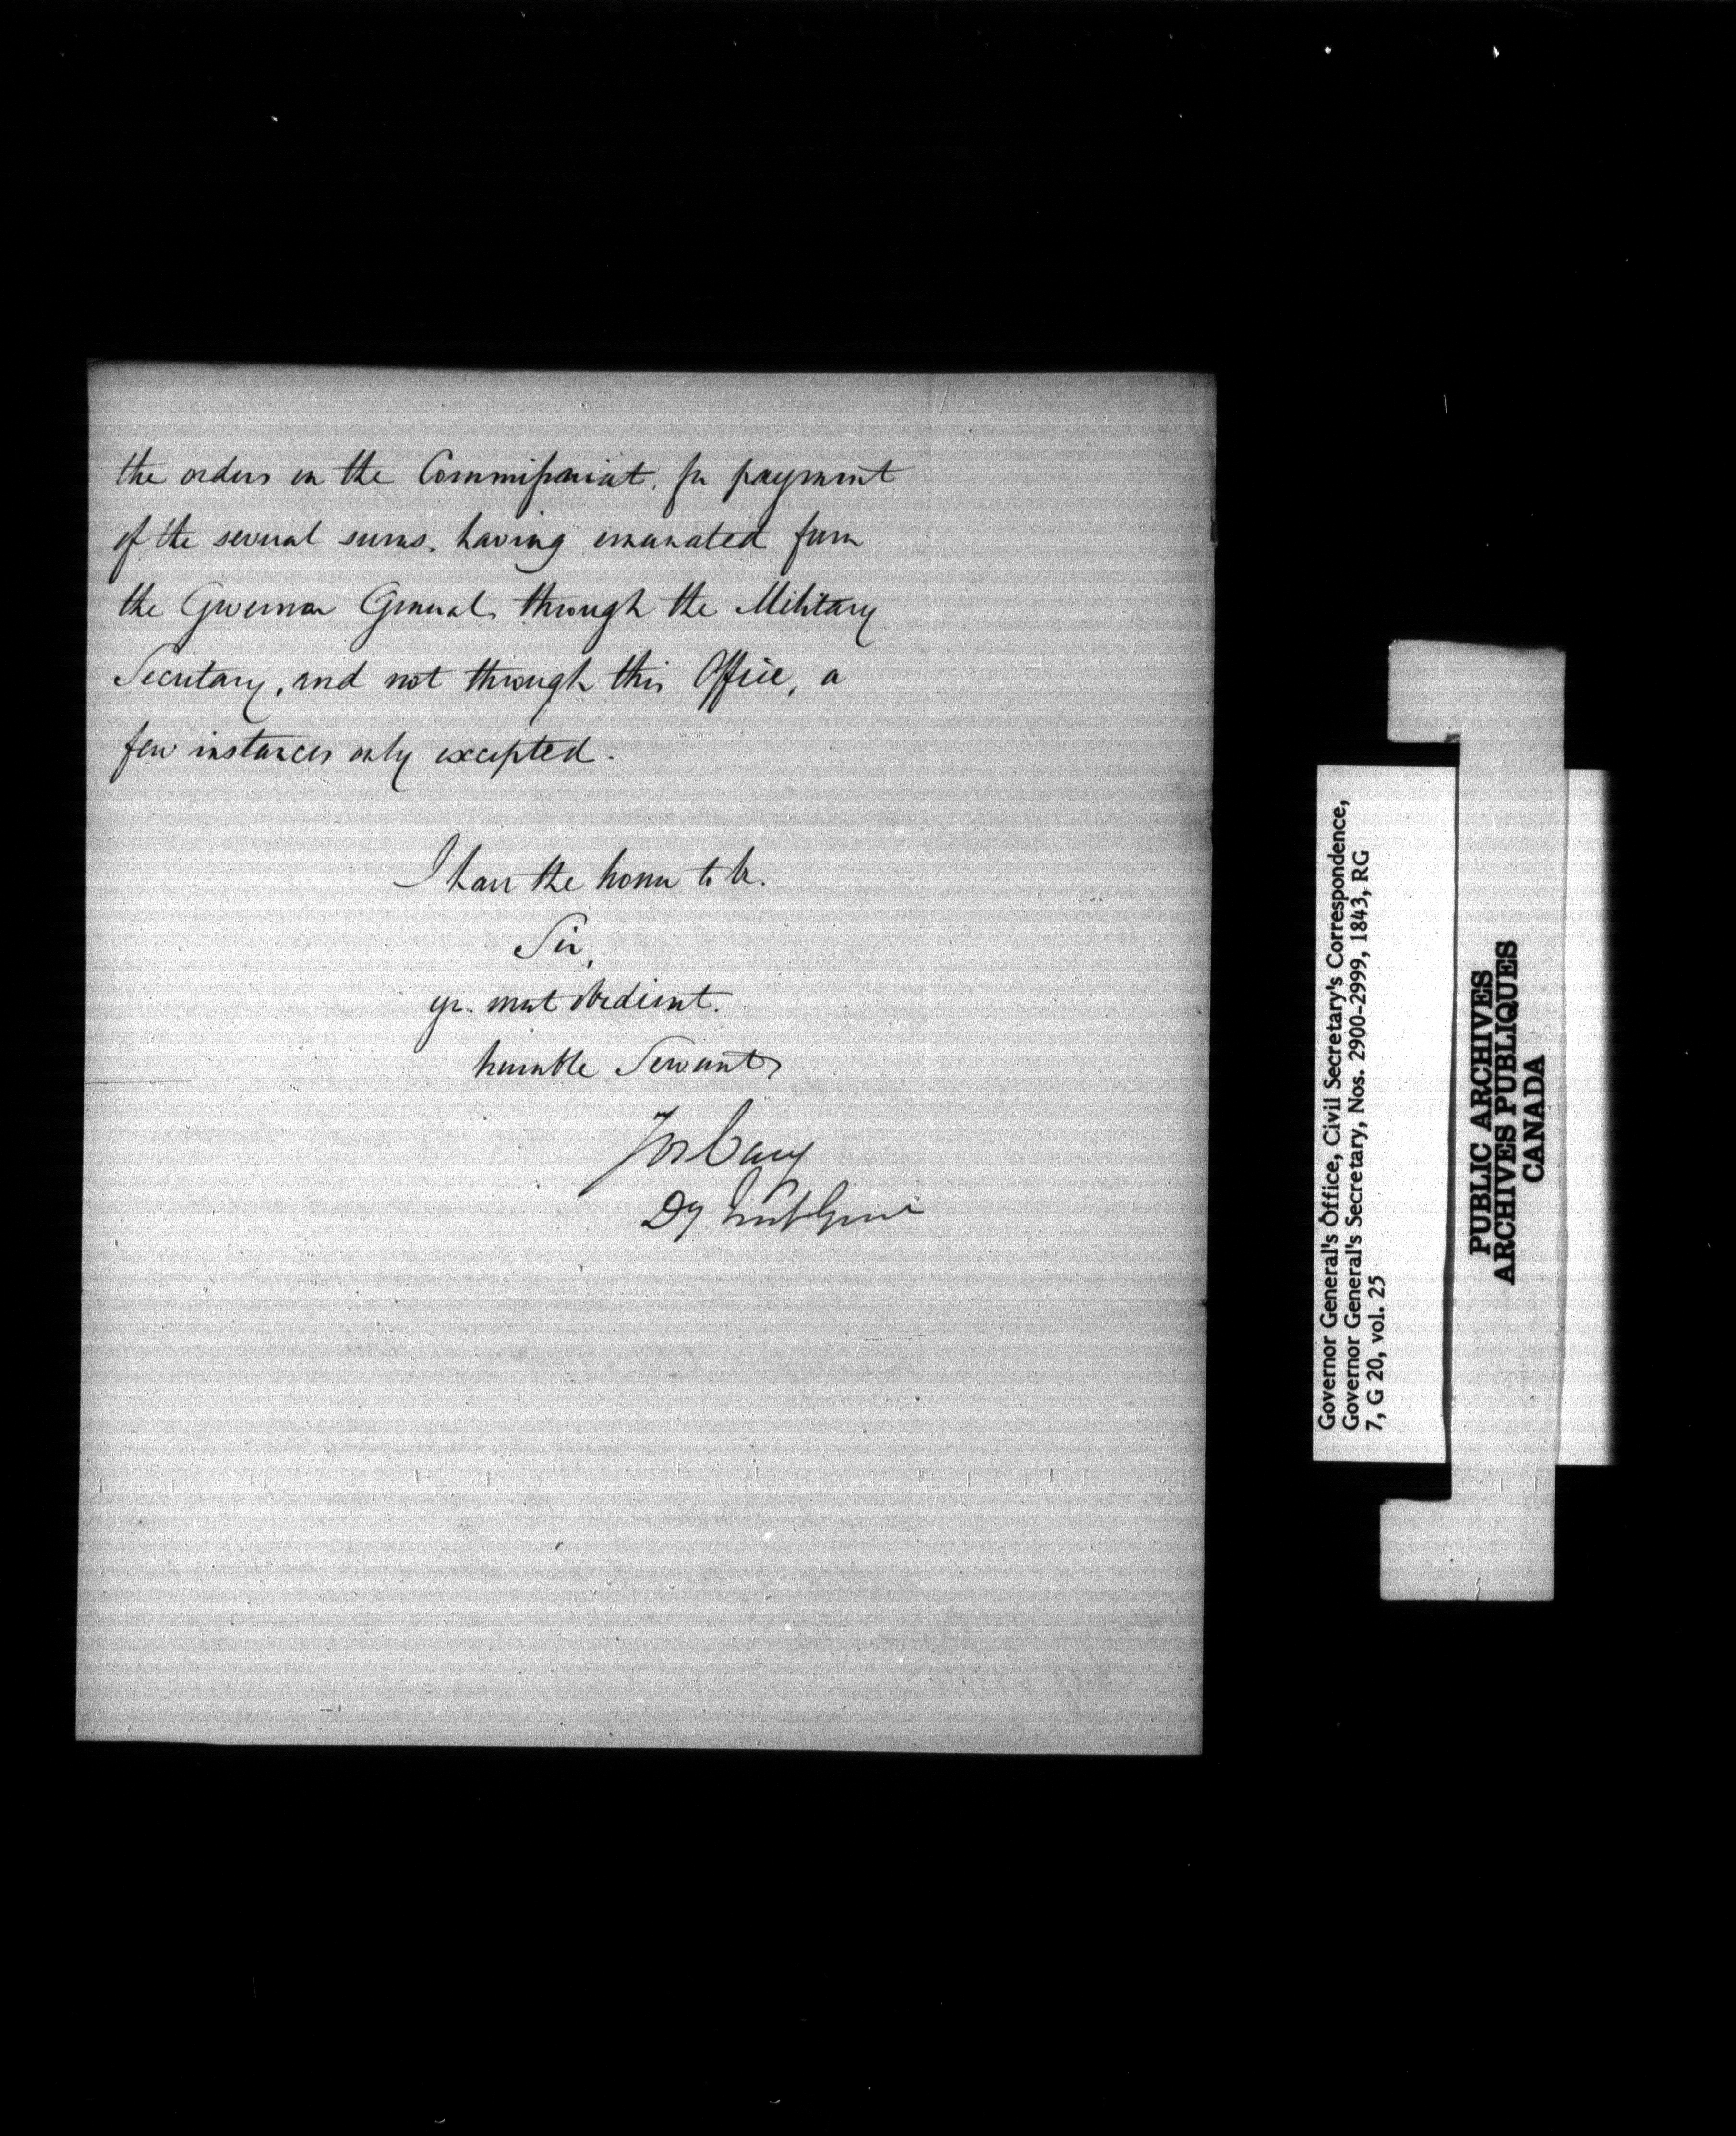 the orders on the Commissariat, for payment
of the several sums, having emanated from
the Governor General, through the Military
Secretary, and not through this Office, a
few instances only excepted.
I have the honor to be.
Sir,
yr. most obedient.
humble Servant,
Jos Cary
Dy Insp Genl
Governor General's Office, Civil Secretary's Correspondence,
Governor General's Secretary, Nos. 2900-2999, 1843, RG
7, G 20, vol. 25
PUBLIC ARCHIVES
ARCHIVES PUBLIQUES
CANADA